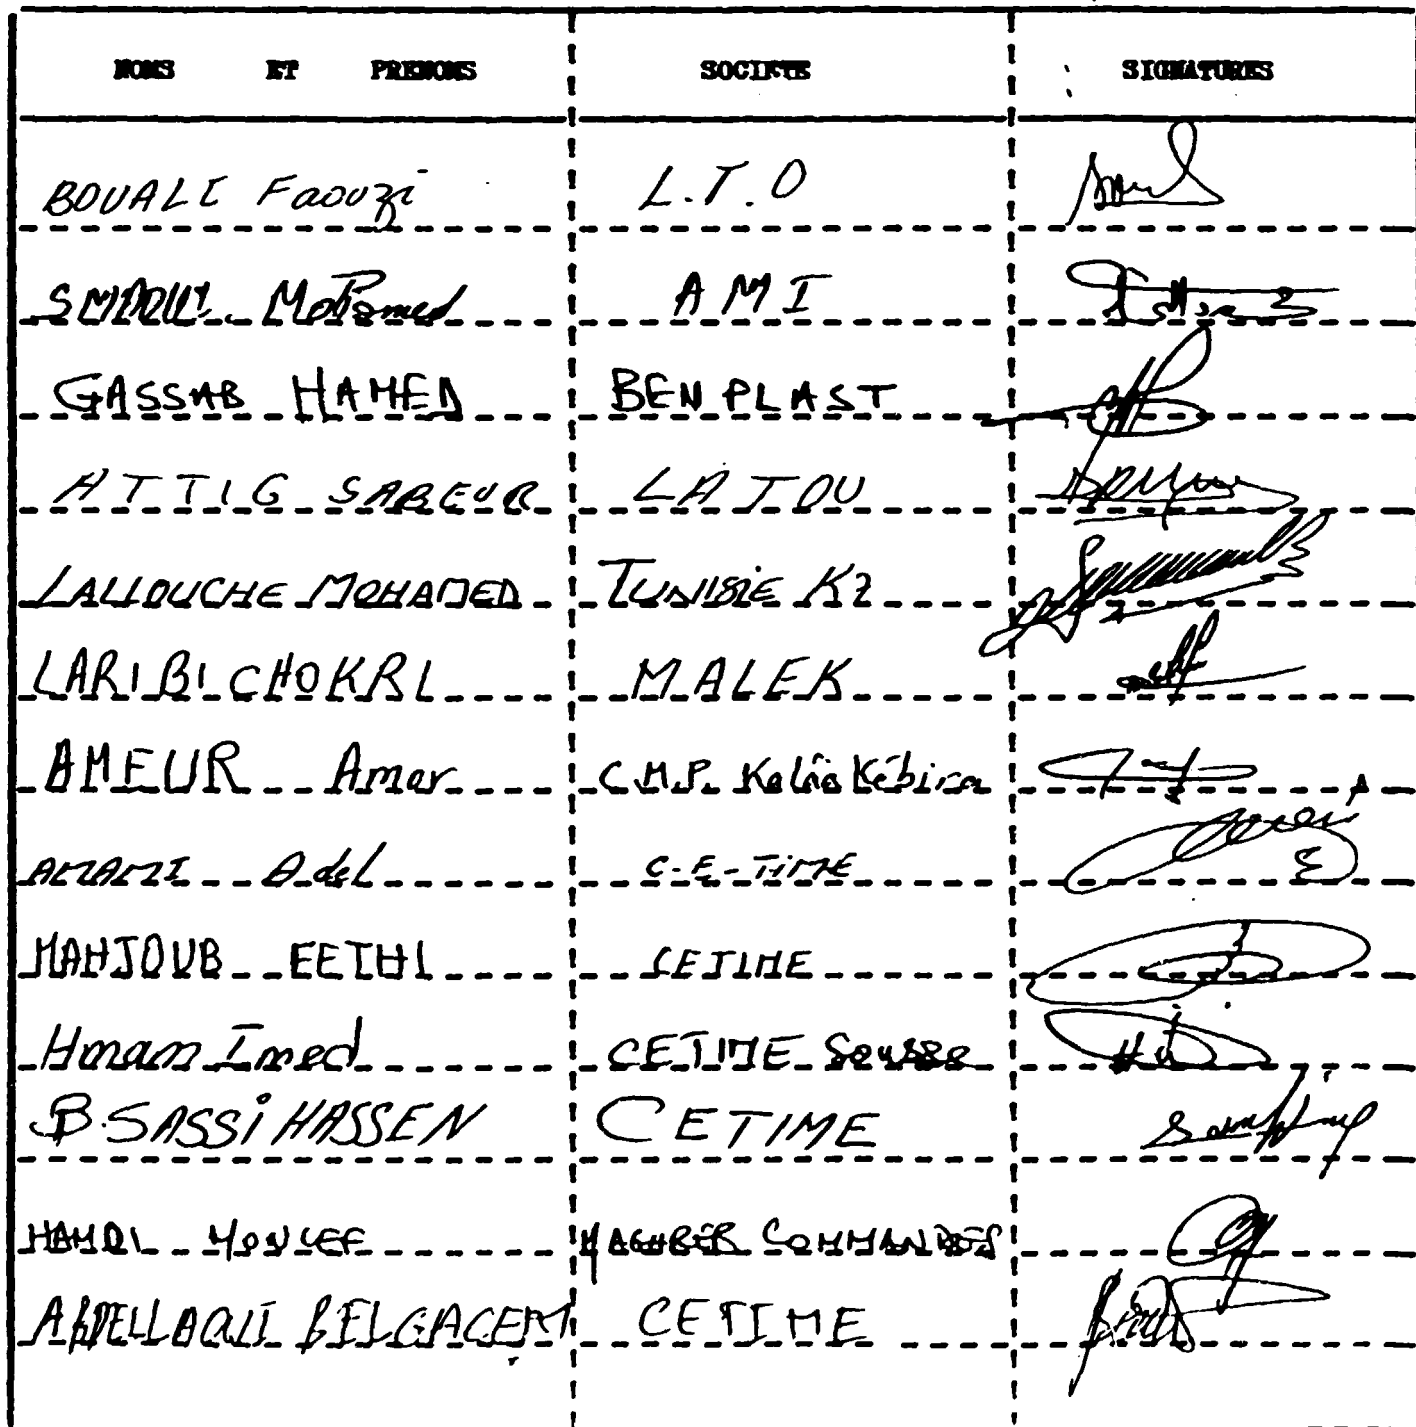 NOMS ET PRENOMS SOCIETE SIGNATURES
BOUALI Faouzi L.T.O
Mohamed AMI
GASSAB HAMED BEN PLAST
ATTIG SABEUR LAJOU
LALLOUCHE MOHAMED TUNISIE K7
LARIBI CHOKRI MALEK
AMEUR Amor C.M.P. Kalâa Kébira
AMAMI Adel C-E-TIME
MAHJOUB EETHI CETIME
Hmam Imed CETIME Sousse
B. SASSI HASSEN CETIME
HAMDI MONCEF MAGHREB COMMANDES
ABDELLAOUI BELGACEM CETIME